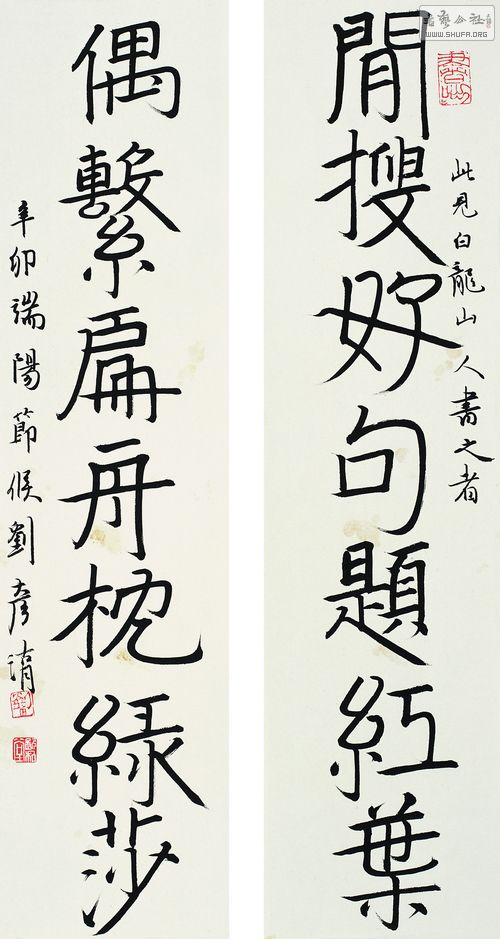 書藝公社
WWW.SHUFA.ORG
此見白龍山人書之者
閒搜好句題紅葉
偶繫扁舟枕綠莎
辛卯端陽節候劉彦